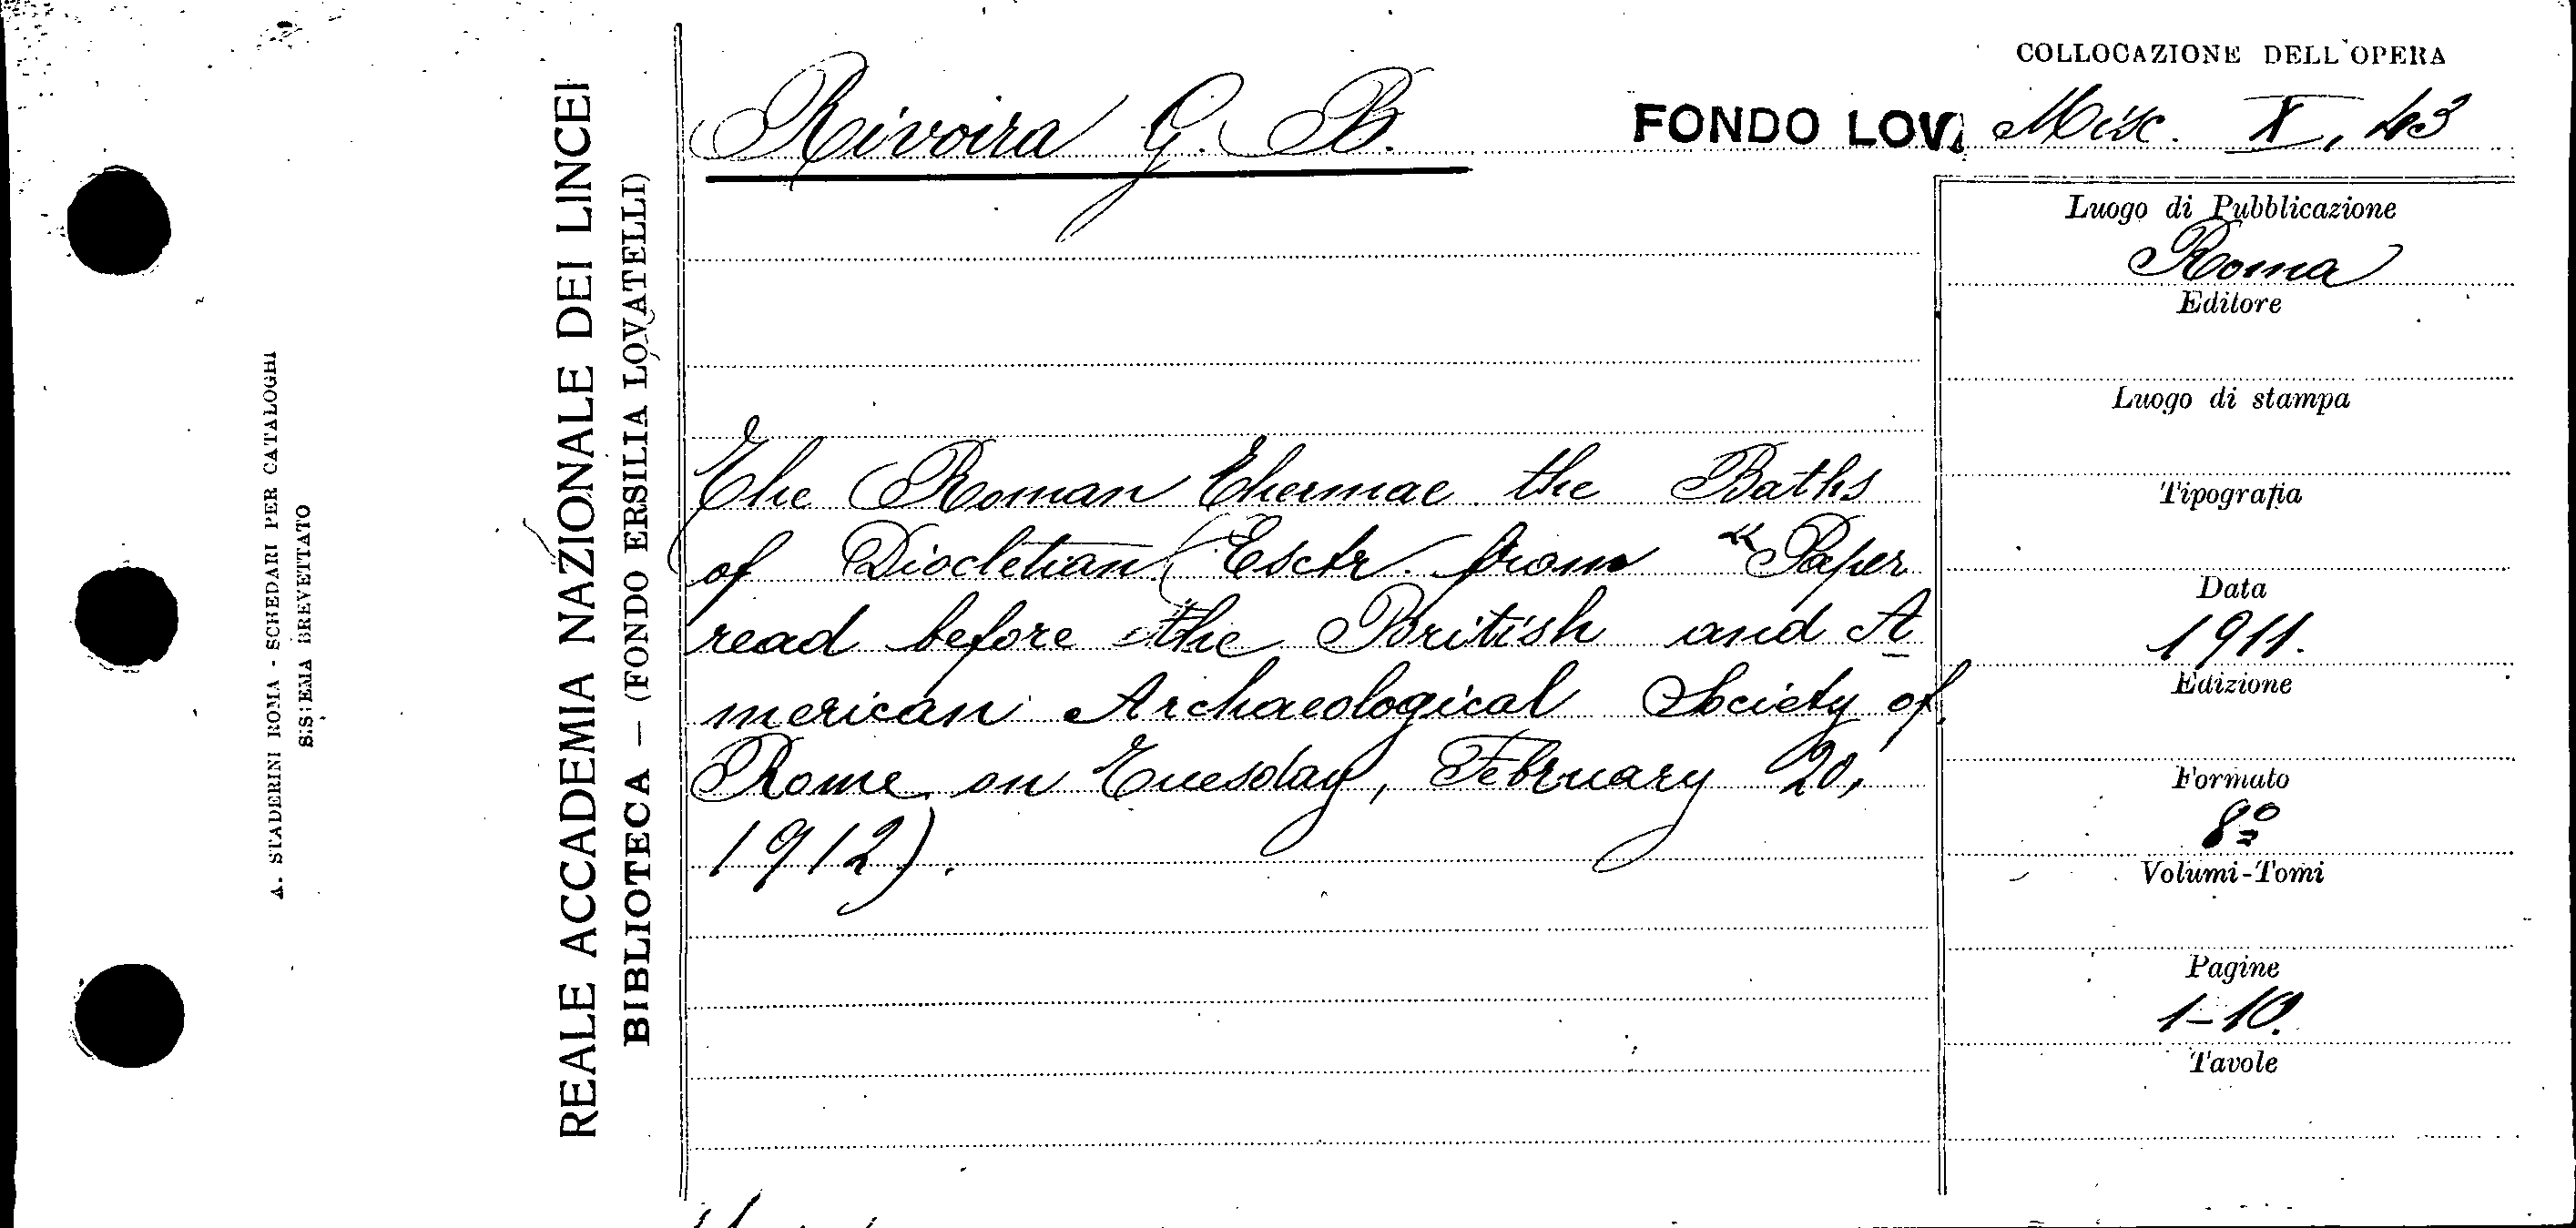 COLLOCAZIONE DELL'OPERA
Rivoira G. B.
FONDO LOV. Misc. X, 43
The Roman Thermae the Baths
of Diocletian (Esctr. from "Paper
read before the British and A
merican Archaeological Society of
Rome on Tuesday, February 20,
1912).
Luogo di Pubblicazione
Roma
Editore
Luogo di stampa
Tipografia
Data
1911.
Edizione
Formato
8º
Volumi-Tomi
Pagine
1-10.
Tavole
REALE ACCADEMIA NAZIONALE DEI LINCEI
BIBLIOTECA — (FONDO ERSILIA LOVATELLI)
A. STADERINI ROMA - SCHEDARI PER CATALOGHI
SISTEMA BREVETTATO